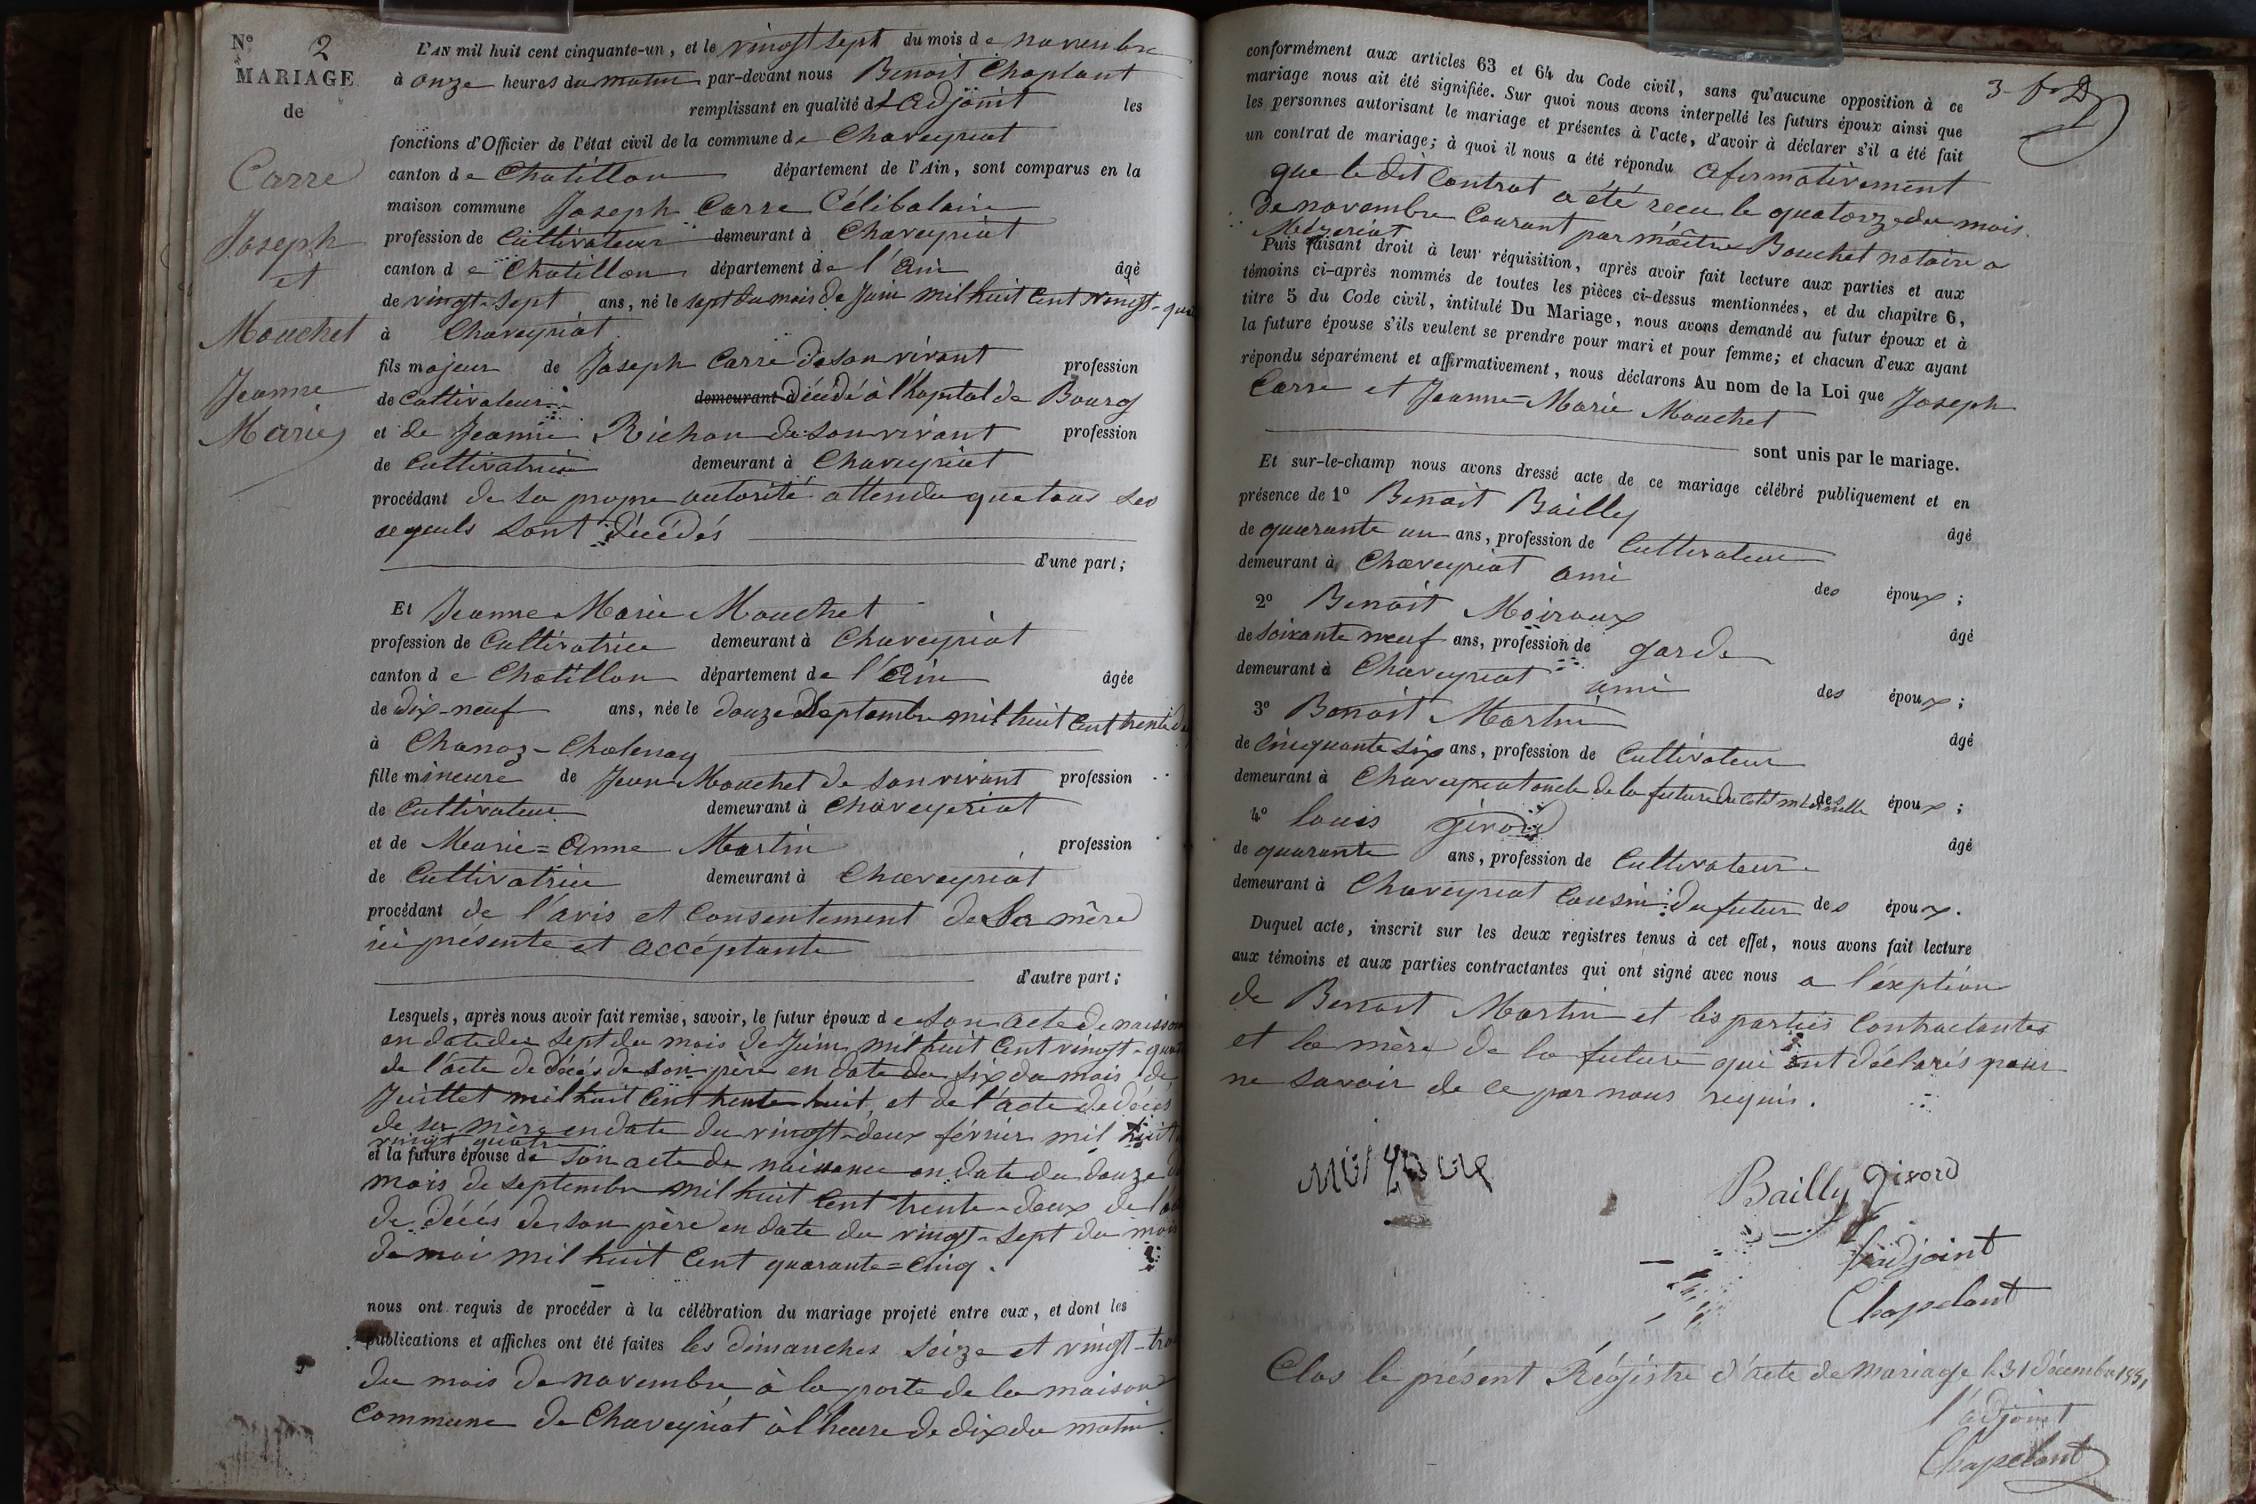 N° 2
MARIAGE
de
Carre
Joseph
et
Mouchet
Jeanne
Marie
L'AN mil huit cent cinquante-un, et le vingt sept du mois de novembre
à onze heures du matin par-devant nous Benoit Chaplant
remplissant en qualité d L'adjoint les
fonctions d'Officier de l'état civil de la commune de Chaveyriat
canton de Chatillon département de l'Ain, sont comparus en la
maison commune Joseph Carre Célibataire
profession de Cultivateur demeurant à Chaveyriat
canton de Chatillon département de l'Ain âgé
de vingt-sept ans, né le sept du mois de Juin mil huit Cent vingt-qua
à Chaveyriat
fils majeur de Joseph Carre de son vivant profession
de Cultivateur demeurant décédé à l'hopital de Bourg
et de Jeanne Richon de son vivant profession
de Cultivatrice demeurant à Chaveyriat
procédant de sa propre autorité attendu que tous ses
ayeuls sont décédés
d'une part;
Et Jeanne Marie Mouchet
profession de Cultivatrice demeurant à Chaveyriat
canton de Chatillon département de l'Ain âgée
de dix-neuf ans, née le douze Septembre mil huit Cent trente d
à Chanoz-Chatenay
fille mineure de Jean Mouchet de son vivant profession
de Cultivateur demeurant à Chaveyeriat
et de Marie=Anne Martin profession
de Cultivatrice demeurant à Chaveyriat
procédant de l'avis et Consentement de Sa mère
ici présente et accéptante
d'autre part;
Lesquels, après nous avoir fait remise, savoir, le futur époux de son acte de naissan
en date du sept du mois de Juin mil huit Cent vingt-quat
de l'acte de décés de son père en date du six du mois de
Juillet mil huit Cent trente huit, et de l'acte de décés
de sa mère en date du vingt-deux février mil huit
vingt quatre
et la future épouse de son acte de naissance en date du douze d
mois de septembre mil huit Cent trente-deux de l'a
de décés de son père en date du vingt-sept du mois
de mai mil huit Cent quarante=Cinq.
nous ont requis de procéder à la célébration du mariage projeté entre eux, et dont les
publications et affiches ont été faites les dimanches Seize et vingt-tro
du mois de novembre à la porte de la maison
Commune de Chaveyriat à l'heure de dix du matin.
3-
conformément aux articles 63 et 64 du Code civil, sans qu'aucune opposition à ce
mariage nous ait été signifiée. Sur quoi nous avons interpellé les futurs époux ainsi que
les personnes autorisant le mariage et présentes à l'acte, d'avoir à déclarer s'il a été fait
un contrat de mariage; à quoi il nous a été répondu afirmativement
que le dit Contrat a été recu le quatorze du mois
de novembre Courant par maître Bouchet notaire a
Mézeriat
Puis faisant droit à leur réquisition, après avoir fait lecture aux parties et aux
témoins ci-après nommés de toutes les pièces ci-dessus mentionnées, et du chapitre 6,
titre 5 du Code civil, intitulé Du Mariage, nous avons demandé au futur époux et à
la future épouse s'ils veulent se prendre pour mari et pour femme; et chacun d'eux ayant
répondu séparément et affirmativement, nous déclarons Au nom de la Loi que Joseph
Carre et Jeanne=Marie Mouchet
sont unis par le mariage.
Et sur-le-champ nous avons dressé acte de ce mariage célébré publiquement et en
présence de 1° Benoit Bailly âgé
de quarante un ans, profession de Cultivateur
demeurant à Chaveyriat ami des époux;
2° Benoit Moiroux âgé
de soixante neuf ans, profession de garde
demeurant à Chaveyriat ami des époux;
3° Benoit Martin âgé
de Cinquante six ans, profession de Cultivateur
demeurant à Chaveyriat oncle de la future du Coté maternelle des époux;
4° Louis Girord âgé
de quarante ans, profession de Cultivateur
demeurant à Chaveyriat Cousin du futur des époux.
Duquel acte, inscrit sur les deux registres tenus à cet effet, nous avons fait lecture
aux témoins et aux parties contractantes qui ont signé avec nous a l'éxption
de Benoit Martin et les parties Contractantes
et la mère de la future qui ont déclarés pour
ne savoir de ce par nous requis.
Bailly Girord
L'adjoint
Chapelant
Clos le présent Régistre d'acte de Mariage le 31 décembre 1851
l'adjoint
Chapelant